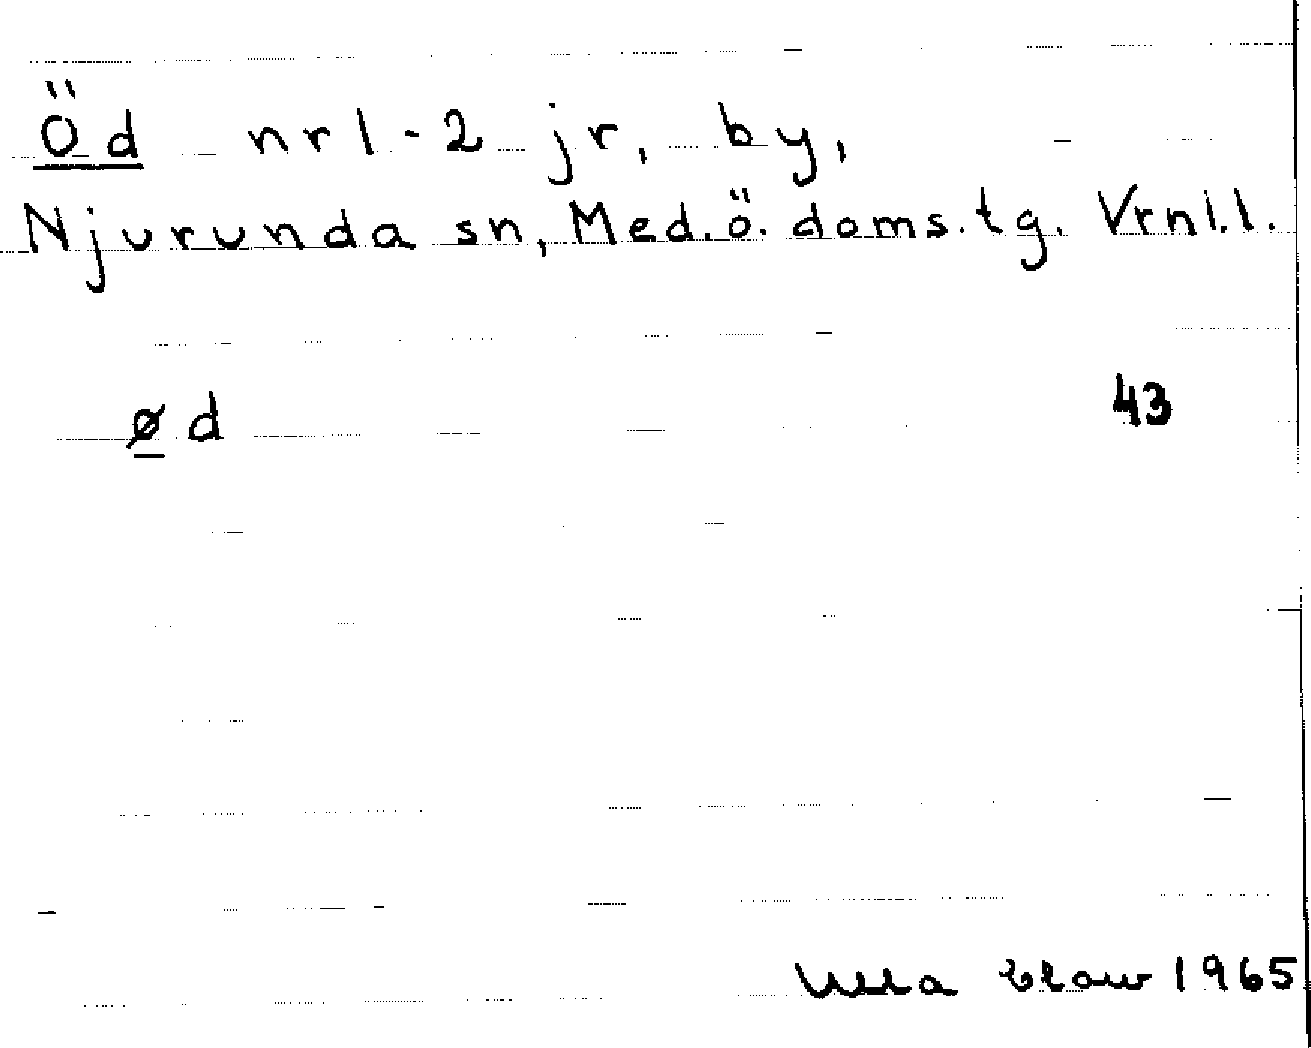 Öd nr 1-2 jr, by,
Njurunda sn, Med.ö. doms.tg. Vrnl.l.
ød 43
Ulla 1965